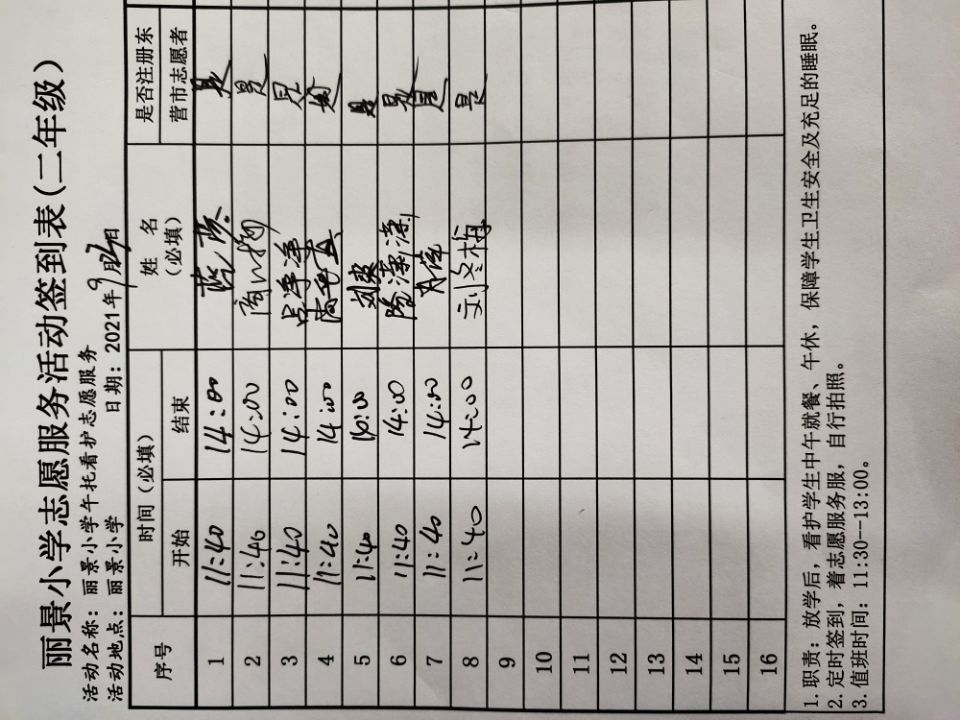 丽景小学志愿服务活动签到表(二年级)
活动名称：丽景小学午托看护志愿服务
活动地点：丽景小学 日期：2021年9月27日
序号 时间(必填) 姓名(必填) 是否注册东营市志愿者
开始 结束
1 11:40 14:00 是
2 11:40 14:00 是
3 11:40 14:00 是
4 11:40 14:00
5 11:40 14:00 刘爽 是
6 11:40 14:00 是
7 11:40 14:00 是
8 11:40 14:00 刘冬梅 是
9
10
11
12
13
14
15
16
1. 职责：放学后，看护学生中午就餐、午休，保障学生卫生安全及充足的睡眠。
2. 定时签到，着志愿服务服，自行拍照。
3. 值班时间：11:30--13:00。